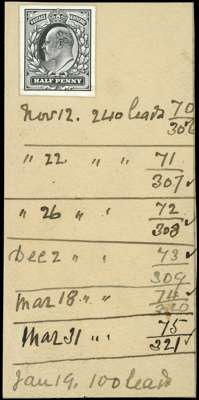 POSTAGE REVENUE
HALF PENNY
Nov 12. 240 leads 70
306
" 22 " " 71
307 ✓
" 26 " " 72
308 ✓
Dec 2 " " 73 ✓
309
Mar 18 " " 74 ✓
Mar 31 " " 75
321 ✓
Jan 19. 100 leads